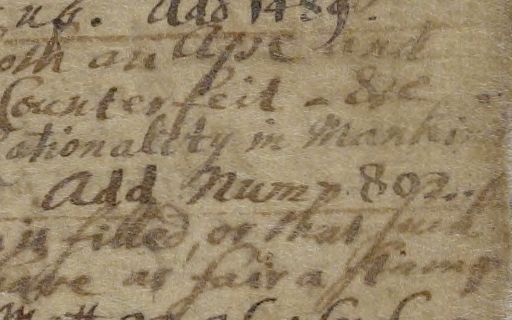 us. Add 1489.
oth an Ape and
Counterfeit - &c
ationality in Mankin
Add Numr. 802..
is filled, or that such
have as fair a stamp